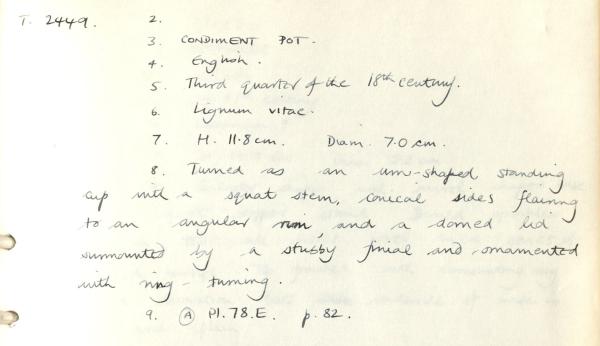 T. 2449. 2.
3. CONDIMENT POT.
4. English.
5. Third quarter of the 18th century.
6. Lignum vitae.
7. H. 11.8cm. Diam. 7.0 cm.
8. Turned as an urn-shaped standing
cup with a squat stem, conical sides flaring
to an angular rim, and a domed lid
surmounted by a stubby finial and ornamented
with ring-turning.
9. Ⓐ Pl. 78.E. p. 82.